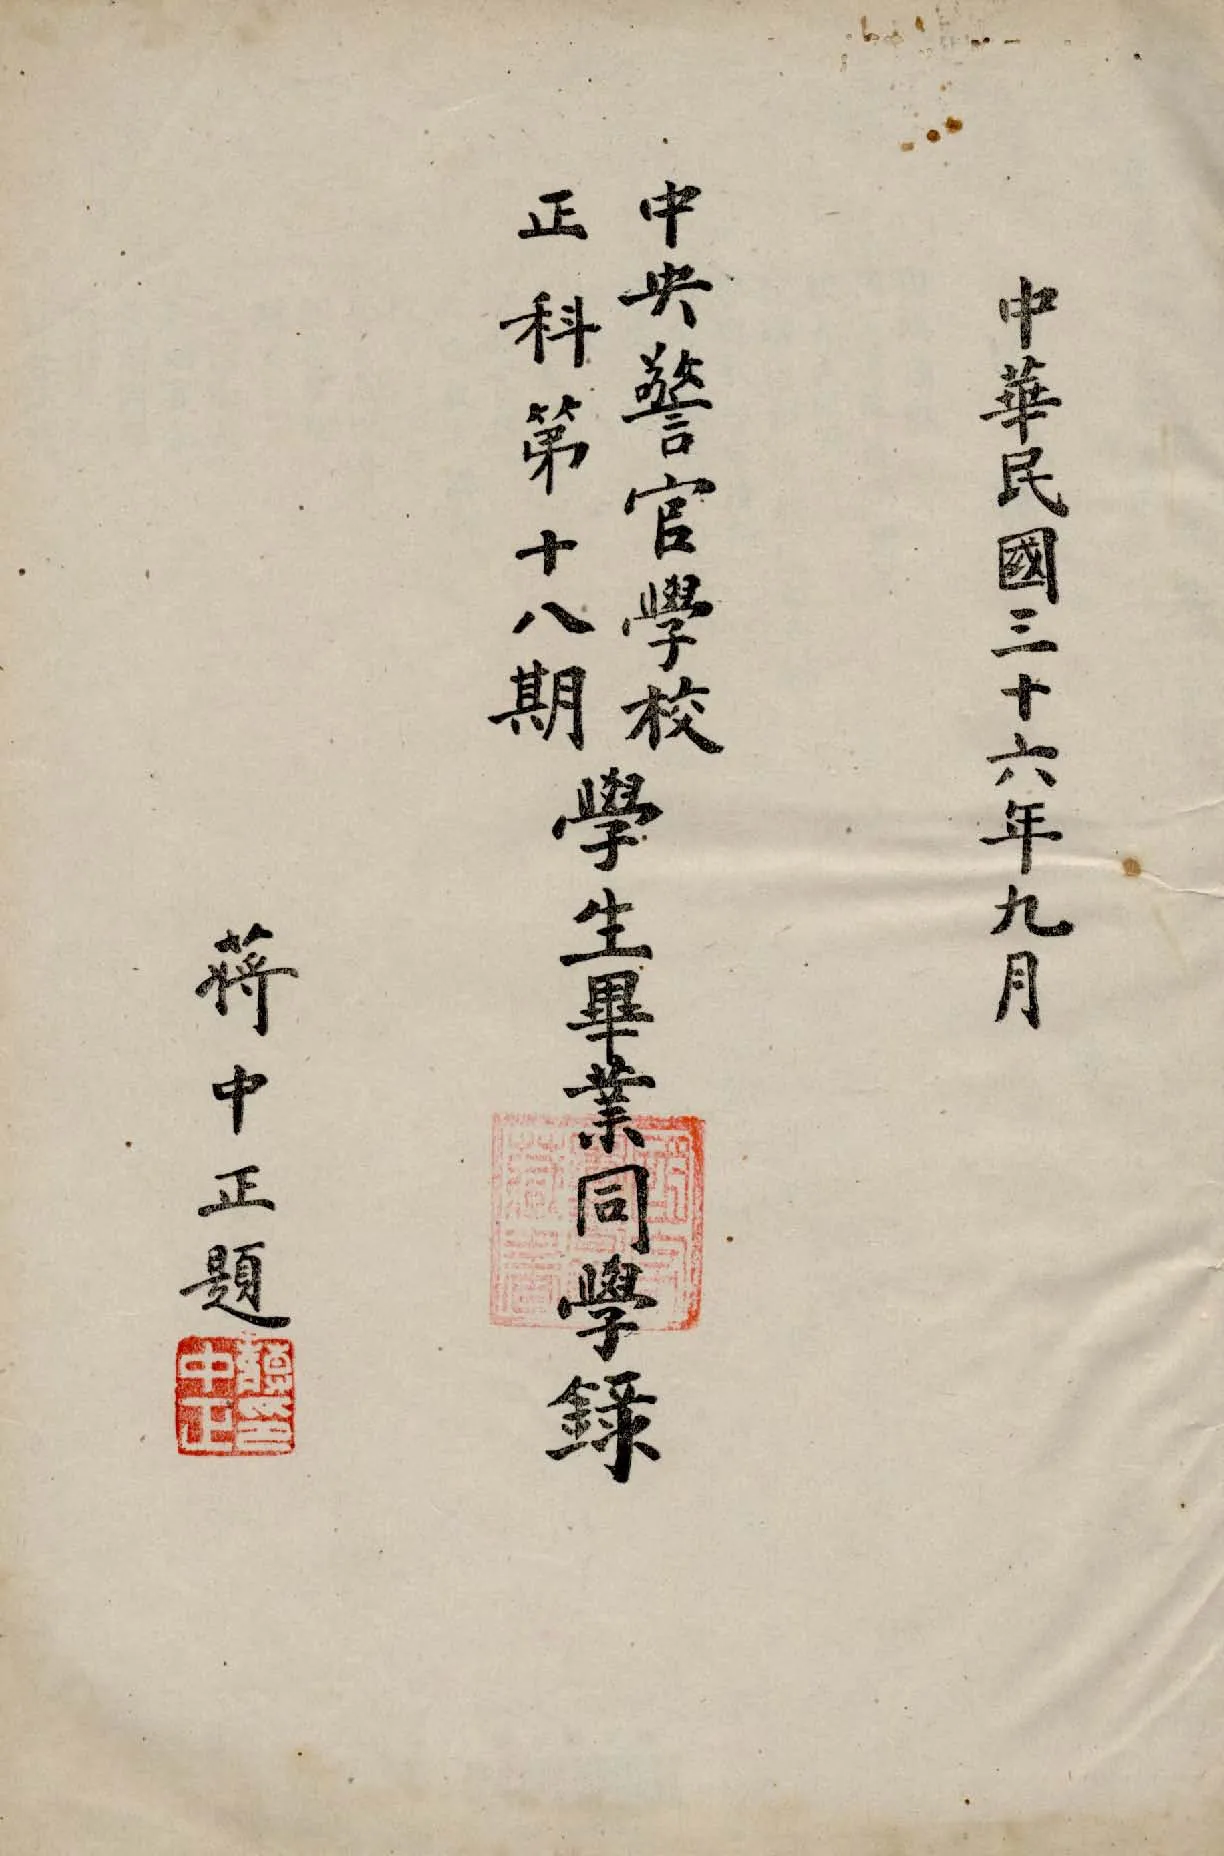 中華民國三十六年九月
中央警官學校
正科第十八期
學生畢業同學錄
蔣中正題
蔣中正印